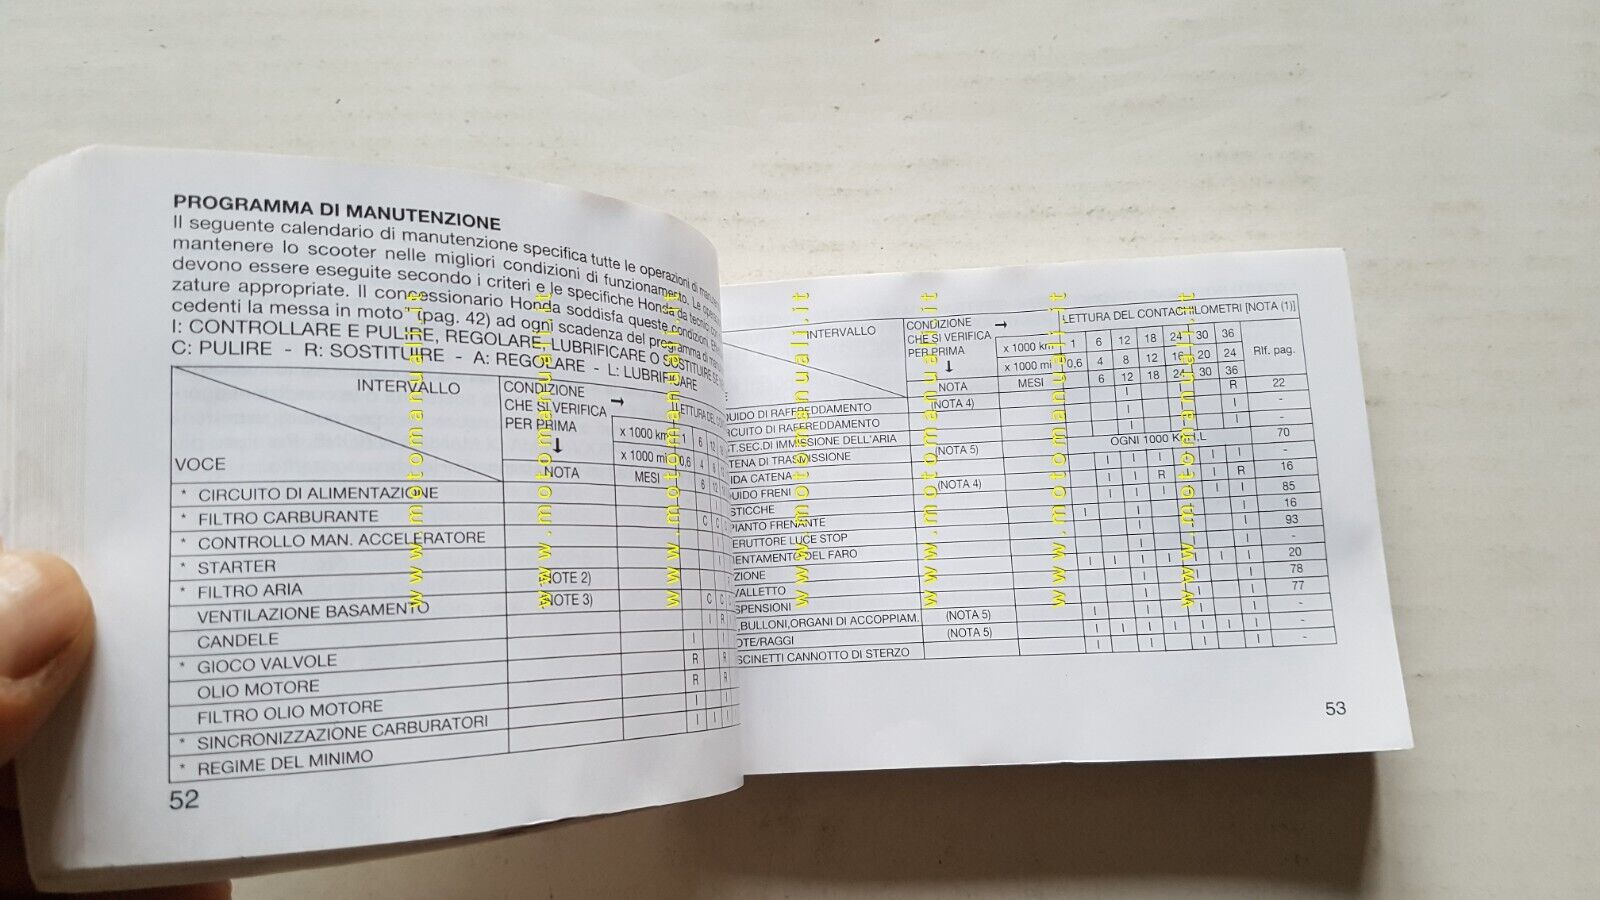 PROGRAMMA DI MANUTENZIONE
Il seguente calendario di manutenzione specifica tutte le operazioni di
mantenere lo scooter nelle migliori condizioni di funzionamento. Le
devono essere eseguite secondo i criteri e le specifiche Honda da tecnici con
zature appropriate. Il concessionario Honda soddisfa queste condizioni.
cedenti la messa in moto" (pag. 42) ad ogni scadenza del programma di
I: CONTROLLARE E PULIRE, REGOLARE, LUBRIFICARE O SOSTITUIRE SE
C: PULIRE - R: SOSTITUIRE - A: REGOLARE - L: LUBRIFICARE
INTERVALLO
VOCE
CONDIZIONE →
CHE SI VERIFICA
PER PRIMA
↓
NOTA
LETTURA DEL
x 1000 km 1 6 12
x 1000 mi 0,6 4 8
MESI 6 12
* CIRCUITO DI ALIMENTAZIONE I
* FILTRO CARBURANTE C C C
* CONTROLLO MAN. ACCELERATORE
* STARTER I
* FILTRO ARIA (NOTE 2)
VENTILAZIONE BASAMENTO (NOTE 3) C C C
CANDELE I R
* GIOCO VALVOLE I I
OLIO MOTORE R R
FILTRO OLIO MOTORE R R
* SINCRONIZZAZIONE CARBURATORI I I
* REGIME DEL MINIMO I I I
52
INTERVALLO
CONDIZIONE →
CHE SI VERIFICA
PER PRIMA
↓
NOTA
LETTURA DEL CONTACHILOMETRI [NOTA (1)]
x 1000 km 1 6 12 18 24 30 36
x 1000 mi 0,6 4 8 12 16 20 24
MESI 6 12 18 24 30 36
Rif. pag.
QUIDO DI RAFFREDDAMENTO (NOTA 4) I R 22
RCUITO DI RAFFREDDAMENTO I I -
ST.SEC.DI IMMISSIONE DELL'ARIA I I -
TENA DI TRASMISSIONE (NOTA 5) OGNI 1000 Km I,L 70
IDA CATENA I I I I I I -
QUIDO FRENI (NOTA 4) I I R I I R 16
STICCHE I I I I I I 85
PIANTO FRENANTE I I I I 16
ERUTTORE LUCE STOP I I I 93
IENTAMENTO DEL FARO I I I -
ZIONE I I I I I I I 20
VALLETTO I I I 78
SPENSIONI I I I 77
,BULLONI,ORGANI DI ACCOPPIAM. (NOTA 5) I I I I -
OTE/RAGGI (NOTA 5) I I I I I I I -
SCINETTI CANNOTTO DI STERZO I I I I -
53
www.motomanuali.it
www.motomanuali.it
www.motomanuali.it
www.motomanuali.it
www.motomanuali.it
www.motomanuali.it
www.motomanuali.it